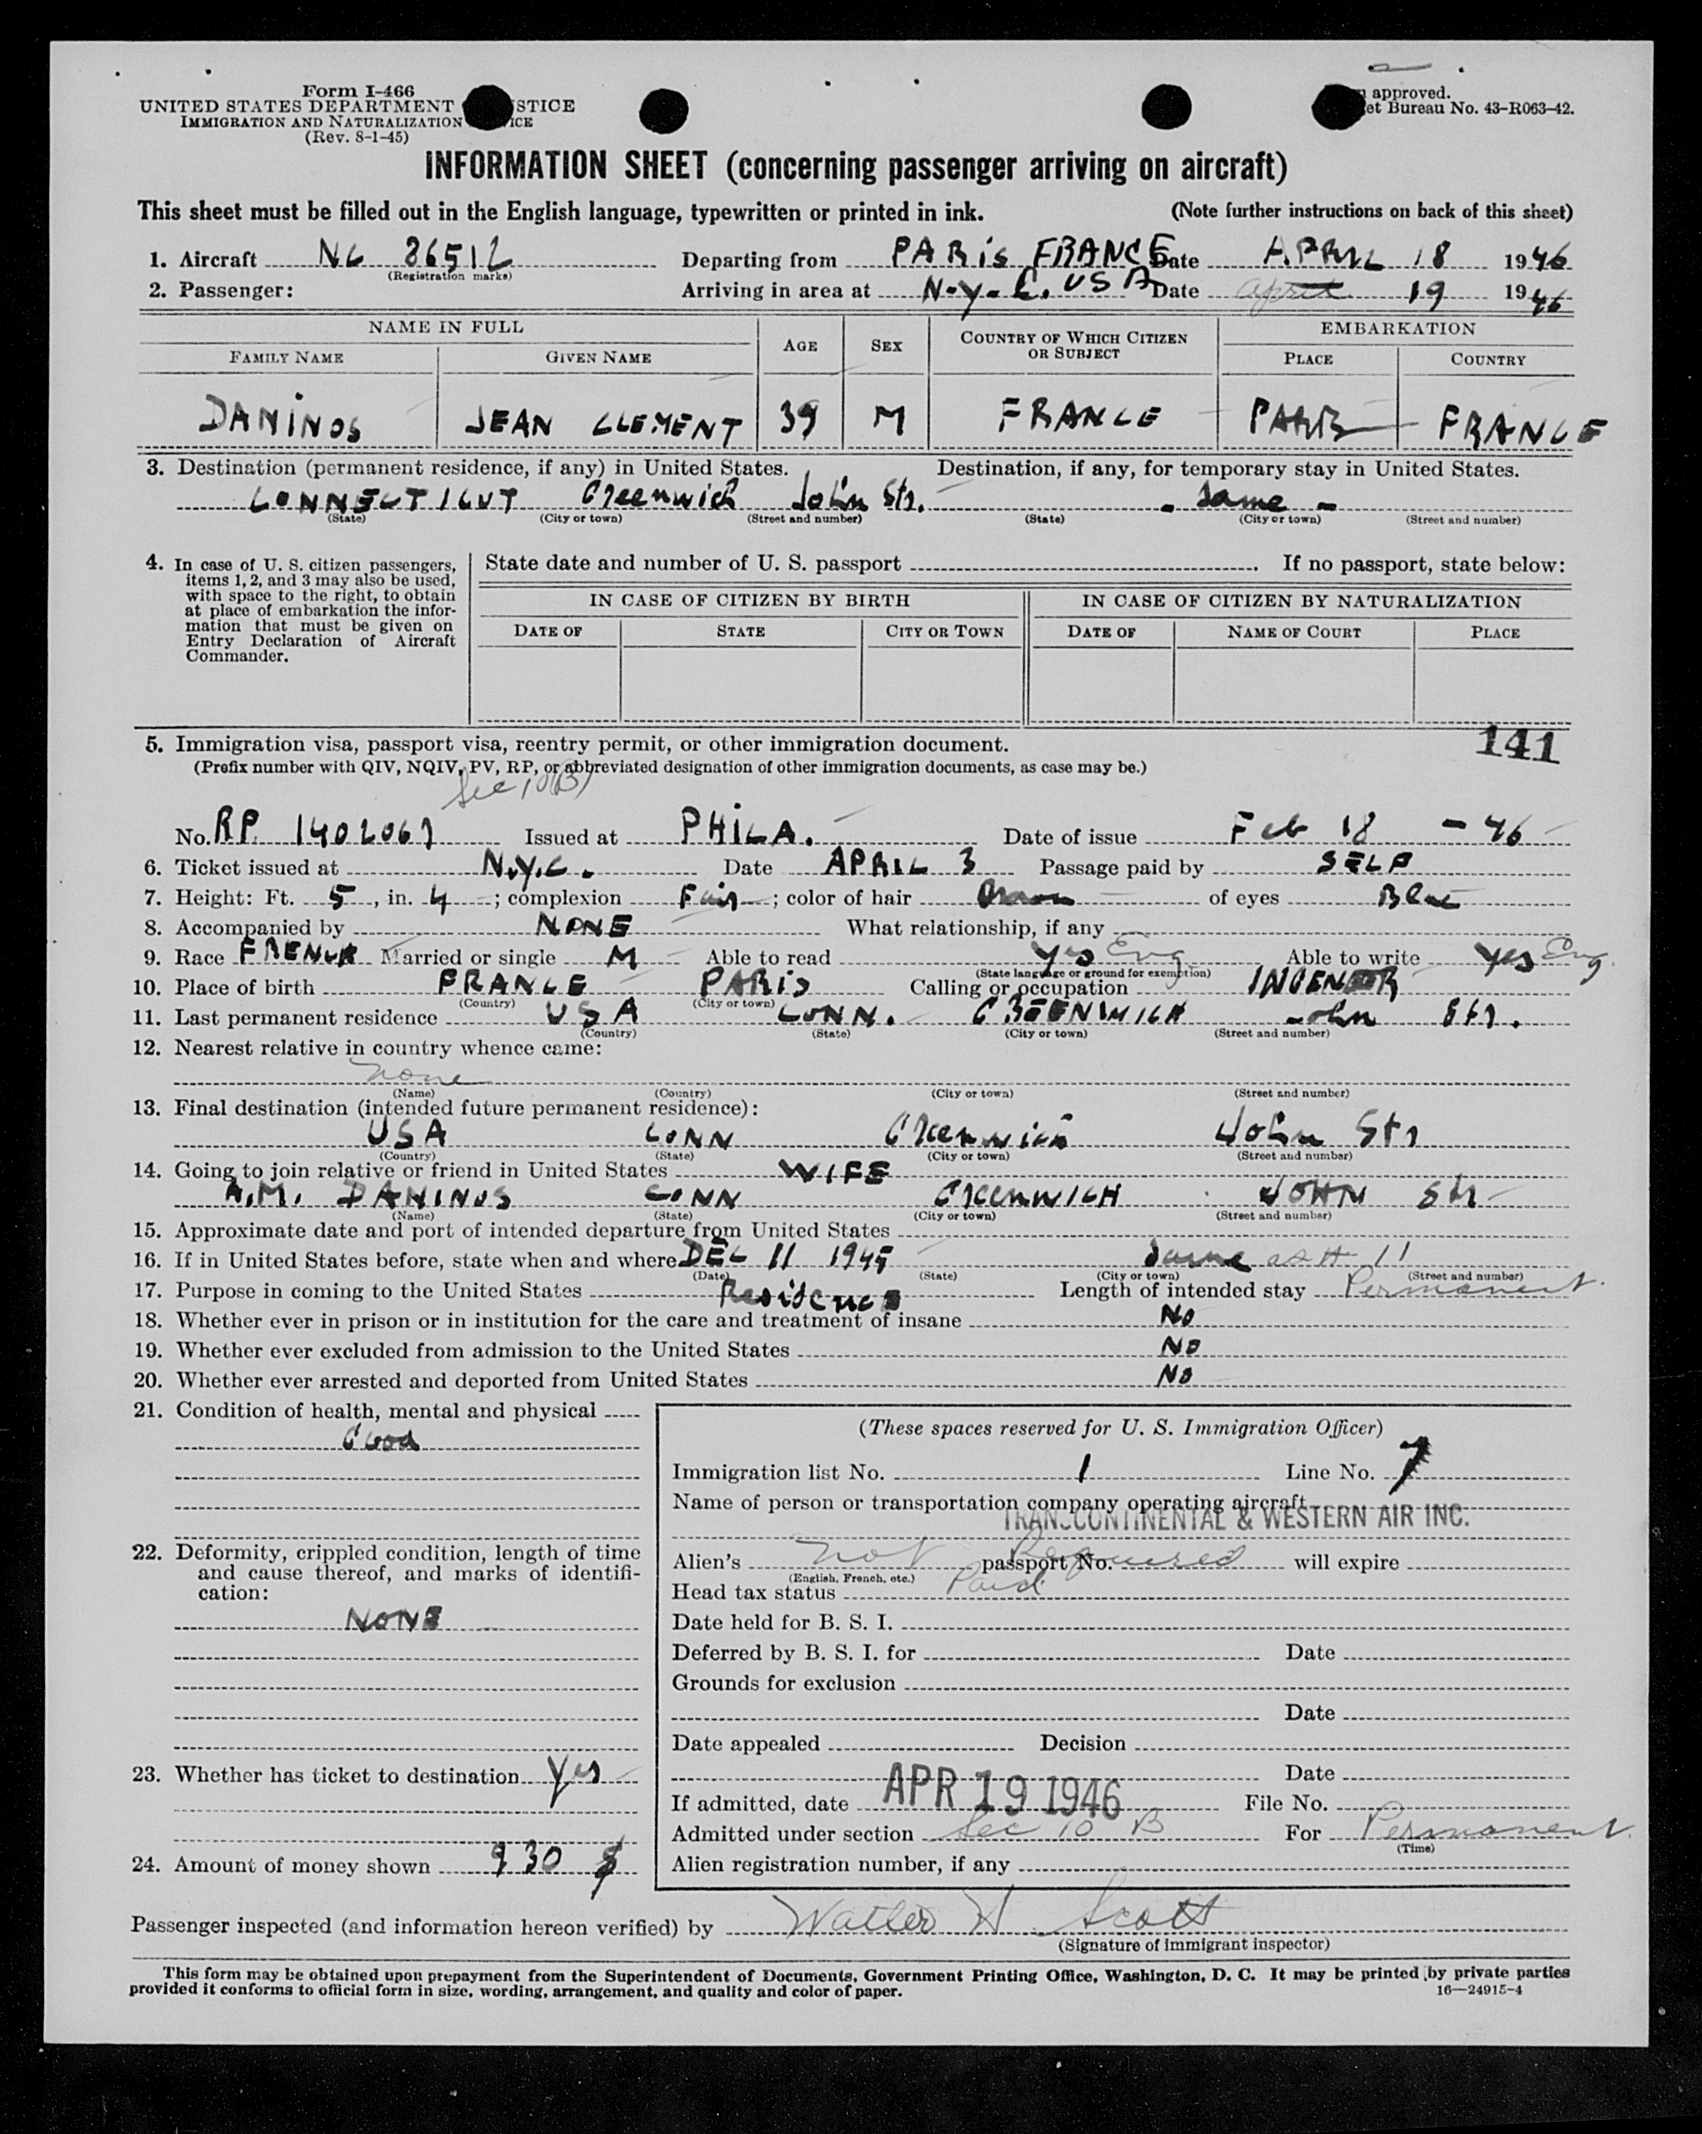 Form I-466
UNITED STATES DEPARTMENT STICE
IMMIGRATION AND NATURALIZATION ICE
(Rev. 8-1-45)
approved.
et Bureau No. 43-R063-42.
INFORMATION SHEET (concerning passenger arriving on aircraft)
This sheet must be filled out in the English language, typewritten or printed in ink. (Note further instructions on back of this sheet)
1. Aircraft NC 86512 Departing from PARIS FRANCE Date APRIL 18 1946
(Registration marks)
2. Passenger: Arriving in area at N.Y.C. USA Date april 19 1946
NAME IN FULL AGE SEX COUNTRY OF WHICH CITIZEN OR SUBJECT EMBARKATION
FAMILY NAME GIVEN NAME PLACE COUNTRY
DANINOS JEAN CLEMENT 39 M FRANCE PARIS FRANCE
3. Destination (permanent residence, if any) in United States. Destination, if any, for temporary stay in United States.
CONNECTICUT Greenwich John Str. - Same -
(State) (City or town) (Street and number) (State) (City or town) (Street and number)
4. In case of U. S. citizen passengers, items 1, 2, and 3 may also be used, with space to the right, to obtain at place of embarkation the information that must be given on Entry Declaration of Aircraft Commander.
State date and number of U. S. passport . If no passport, state below:
IN CASE OF CITIZEN BY BIRTH IN CASE OF CITIZEN BY NATURALIZATION
DATE OF STATE CITY OR TOWN DATE OF NAME OF COURT PLACE
141
5. Immigration visa, passport visa, reentry permit, or other immigration document.
(Prefix number with QIV, NQIV, PV, RP, or abbreviated designation of other immigration documents, as case may be.)
Sec 10(B)
No. RP. 1402067 Issued at PHILA. Date of issue Feb 18 - 46
6. Ticket issued at N.Y.C. Date APRIL 3 Passage paid by SELF
7. Height: Ft. 5, in. 4; complexion Fair; color of hair Brown of eyes Blue
8. Accompanied by NONE What relationship, if any
9. Race FRENCH Married or single M Able to read Yes Eng. Able to write Yes Eng.
(State language or ground for exemption)
10. Place of birth FRANCE PARIS Calling or occupation
(Country) (City or town)
11. Last permanent residence USA CONN. GREENWICH John Str.
(Country) (State) (City or town) (Street and number)
12. Nearest relative in country whence came:
None
(Name) (Country) (City or town) (Street and number)
13. Final destination (intended future permanent residence):
USA CONN Greenwich John Str
(Country) (State) (City or town) (Street and number)
14. Going to join relative or friend in United States WIFE
A.M. DANINOS CONN GREENWICH JOHN Str
(Name) (State) (City or town) (Street and number)
15. Approximate date and port of intended departure from United States
16. If in United States before, state when and where DEC 11 1945 Same as # 11
(Date) (State) (City or town) (Street and number)
17. Purpose in coming to the United States Residence Length of intended stay Permanent
18. Whether ever in prison or in institution for the care and treatment of insane No
19. Whether ever excluded from admission to the United States No
20. Whether ever arrested and deported from United States No
21. Condition of health, mental and physical
Good
(These spaces reserved for U. S. Immigration Officer)
Immigration list No. 1 Line No. 7
Name of person or transportation company operating aircraft
TRANSCONTINENTAL & WESTERN AIR INC.
22. Deformity, crippled condition, length of time and cause thereof, and marks of identification:
NONE
Alien's not passport No. Required will expire
(English, French, etc.)
Head tax status Paid
Date held for B. S. I.
Deferred by B. S. I. for Date
Grounds for exclusion
Date
Date appealed Decision
23. Whether has ticket to destination Yes
Date
If admitted, date APR 19 1946 File No.
Admitted under section Sec 10 B For Permanent
(Time)
24. Amount of money shown 930 $
Alien registration number, if any
Passenger inspected (and information hereon verified) by Walter H Scott
(Signature of immigrant inspector)
This form may be obtained upon prepayment from the Superintendent of Documents, Government Printing Office, Washington, D. C. It may be printed by private parties
provided it conforms to official form in size, wording, arrangement, and quality and color of paper. 16—24915-4